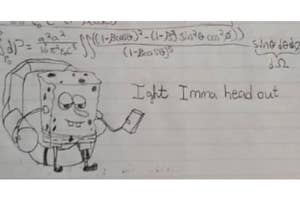 ∫dP = q²a²/16π²ε₀c³ ∫∫ ((1-βcosθ)²-(1-β²)sin²θcos²ϕ)/(1-βcosθ)⁵ sinθdθdϕ
dΩ
Ight Imma head out